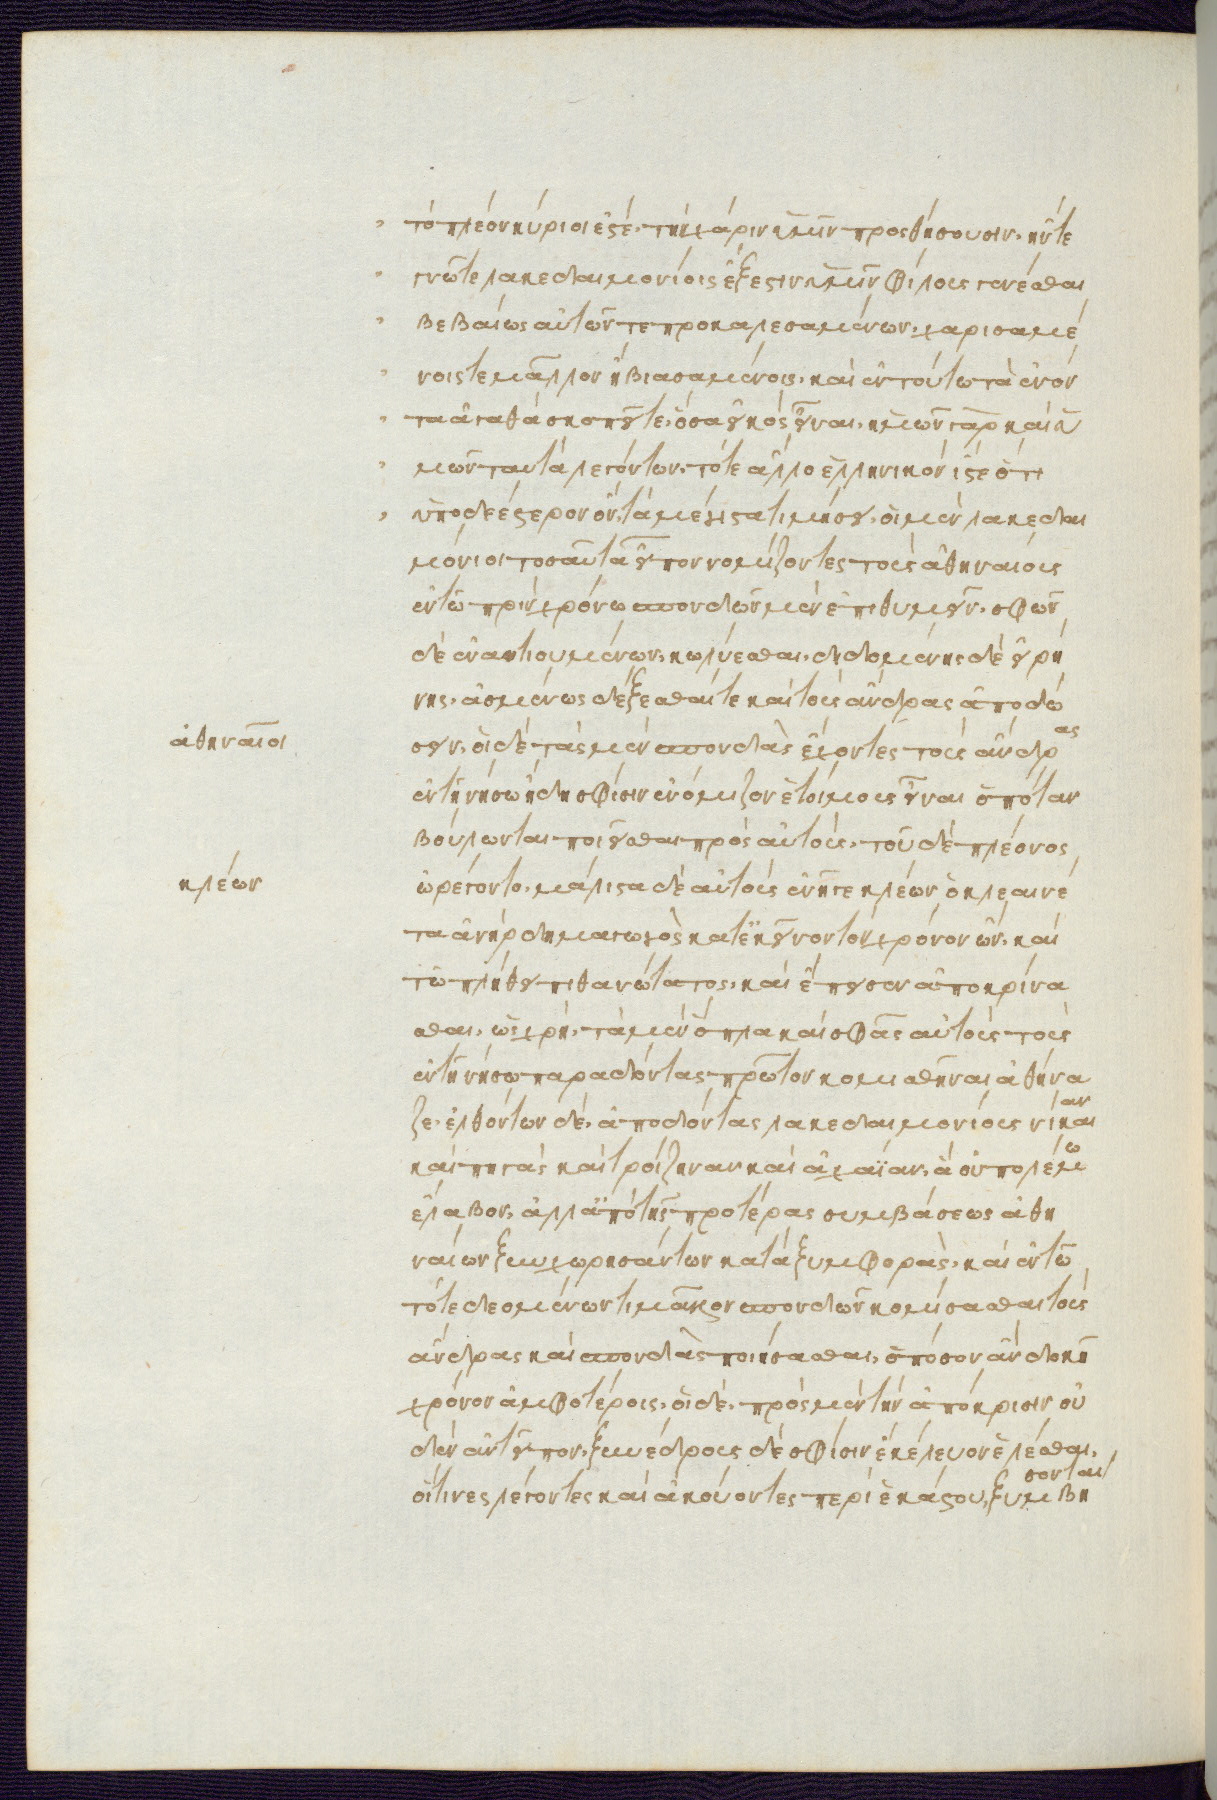 τὸ πλέον κύριοί ἐστε. τὴν χάριν ὑμῖν προσθήσουσιν. ἤν τε
γνῶτε λακεδαιμονίοις ἔξεστιν ὑμῖν φίλους γενέσθαι
βεβαίως αὐτῶν τε προκαλεσαμένων. χαρισαμέ
νοις τε μᾶλλον ἢ βιασαμένοις. καὶ ἐν τούτω τὰ ἐνόν
τα ἀγαθὰ σκοπεῖτε. ὅσα εἰκὸς εἶναι. ἡμῶν γὰρ καὶ ὑ
μῶν ταυτὰ λεγόντων. τό τε ἄλλο ἑλληνικὸν ἴστε ὅτι
ὑποδεέστερον ὂν. τὰ μέγιστα τιμήσει. οἱ μὲν λακεδαι
μόνιοι τοσαῦτα εἶπον νομίζοντες τοὺς ἀθηναίους
ἐν τῶ πρὶν χρόνω σπονδῶν μὲν ἐπιθυμεῖν. σφῶν
δὲ ἐναντιουμένων. κωλύεσθαι. διδομένης δὲ εἰρή
νης. ἀσμένως δέξεσθαί τε καὶ τοὺς ἄνδρας ἀποδώ
ἀθηναῖοι
σειν. οἱ δὲ τὰς μὲν σπονδὰς ἔχοντες τοὺς ἄνδρας
ἐν τῆ νήσω ἤδη σφίσιν ἐνόμιζον ἑτοίμους εἶναι ὁπόταν
βούλωνται ποιεῖσθαι πρὸς αὐτούς. τοῦ δὲ πλέονος
κλέων
ὠρέγοντο. μάλιστα δὲ αὐτοὺς ἐνῆγε κλέων ὁ κλεαινέ
του ἀνὴρ δημαγωγὸς κατ' ἐκεῖνον τὸν χρόνον ὢν. καὶ
τῶ πλήθει πιθανώτατος. καὶ ἔπεισαν ἀποκρίνα
σθαι. ὡς χρὴ. τὰ μὲν ὅπλα καὶ σφᾶς αὐτοὺς τοὺς
ἐν τῆ νήσω παραδόντας πρῶτον κομισθῆναι ἀθήνα
ζε. ἐλθόντων δὲ. ἀποδόντας λακεδαιμονίους νίκαιαν
καὶ πηγὰς καὶ τροίζηναν καὶ ἀχαΐαν. ἃ οὐ πολέμω
ἔλαβον. ἀλλ' ἀπὸ τῆς προτέρας συμβάσεως ἀθη
ναίων ξυγχωρησάντων κατὰ ξυμφορὰς. καὶ ἐν τῶ
τότε δεομένων τι μᾶλλον σπονδῶν κομίσασθαι τοὺς
ἄνδρας καὶ σπονδὰς ποιήσασθαι. ὁπόσον ἂν δοκῆ
χρόνον ἀμφοτέροις. οἱ δὲ. πρὸς μὲν τὴν ἀπόκρισιν οὐ
δὲν ἀντεῖπον. ξυνέδρους δὲ σφίσιν ἐκέλευον ἑλέσθαι.
οἵτινες λέγοντες καὶ ἀκούοντες περὶ ἑκάστου, ξυμβήσονται